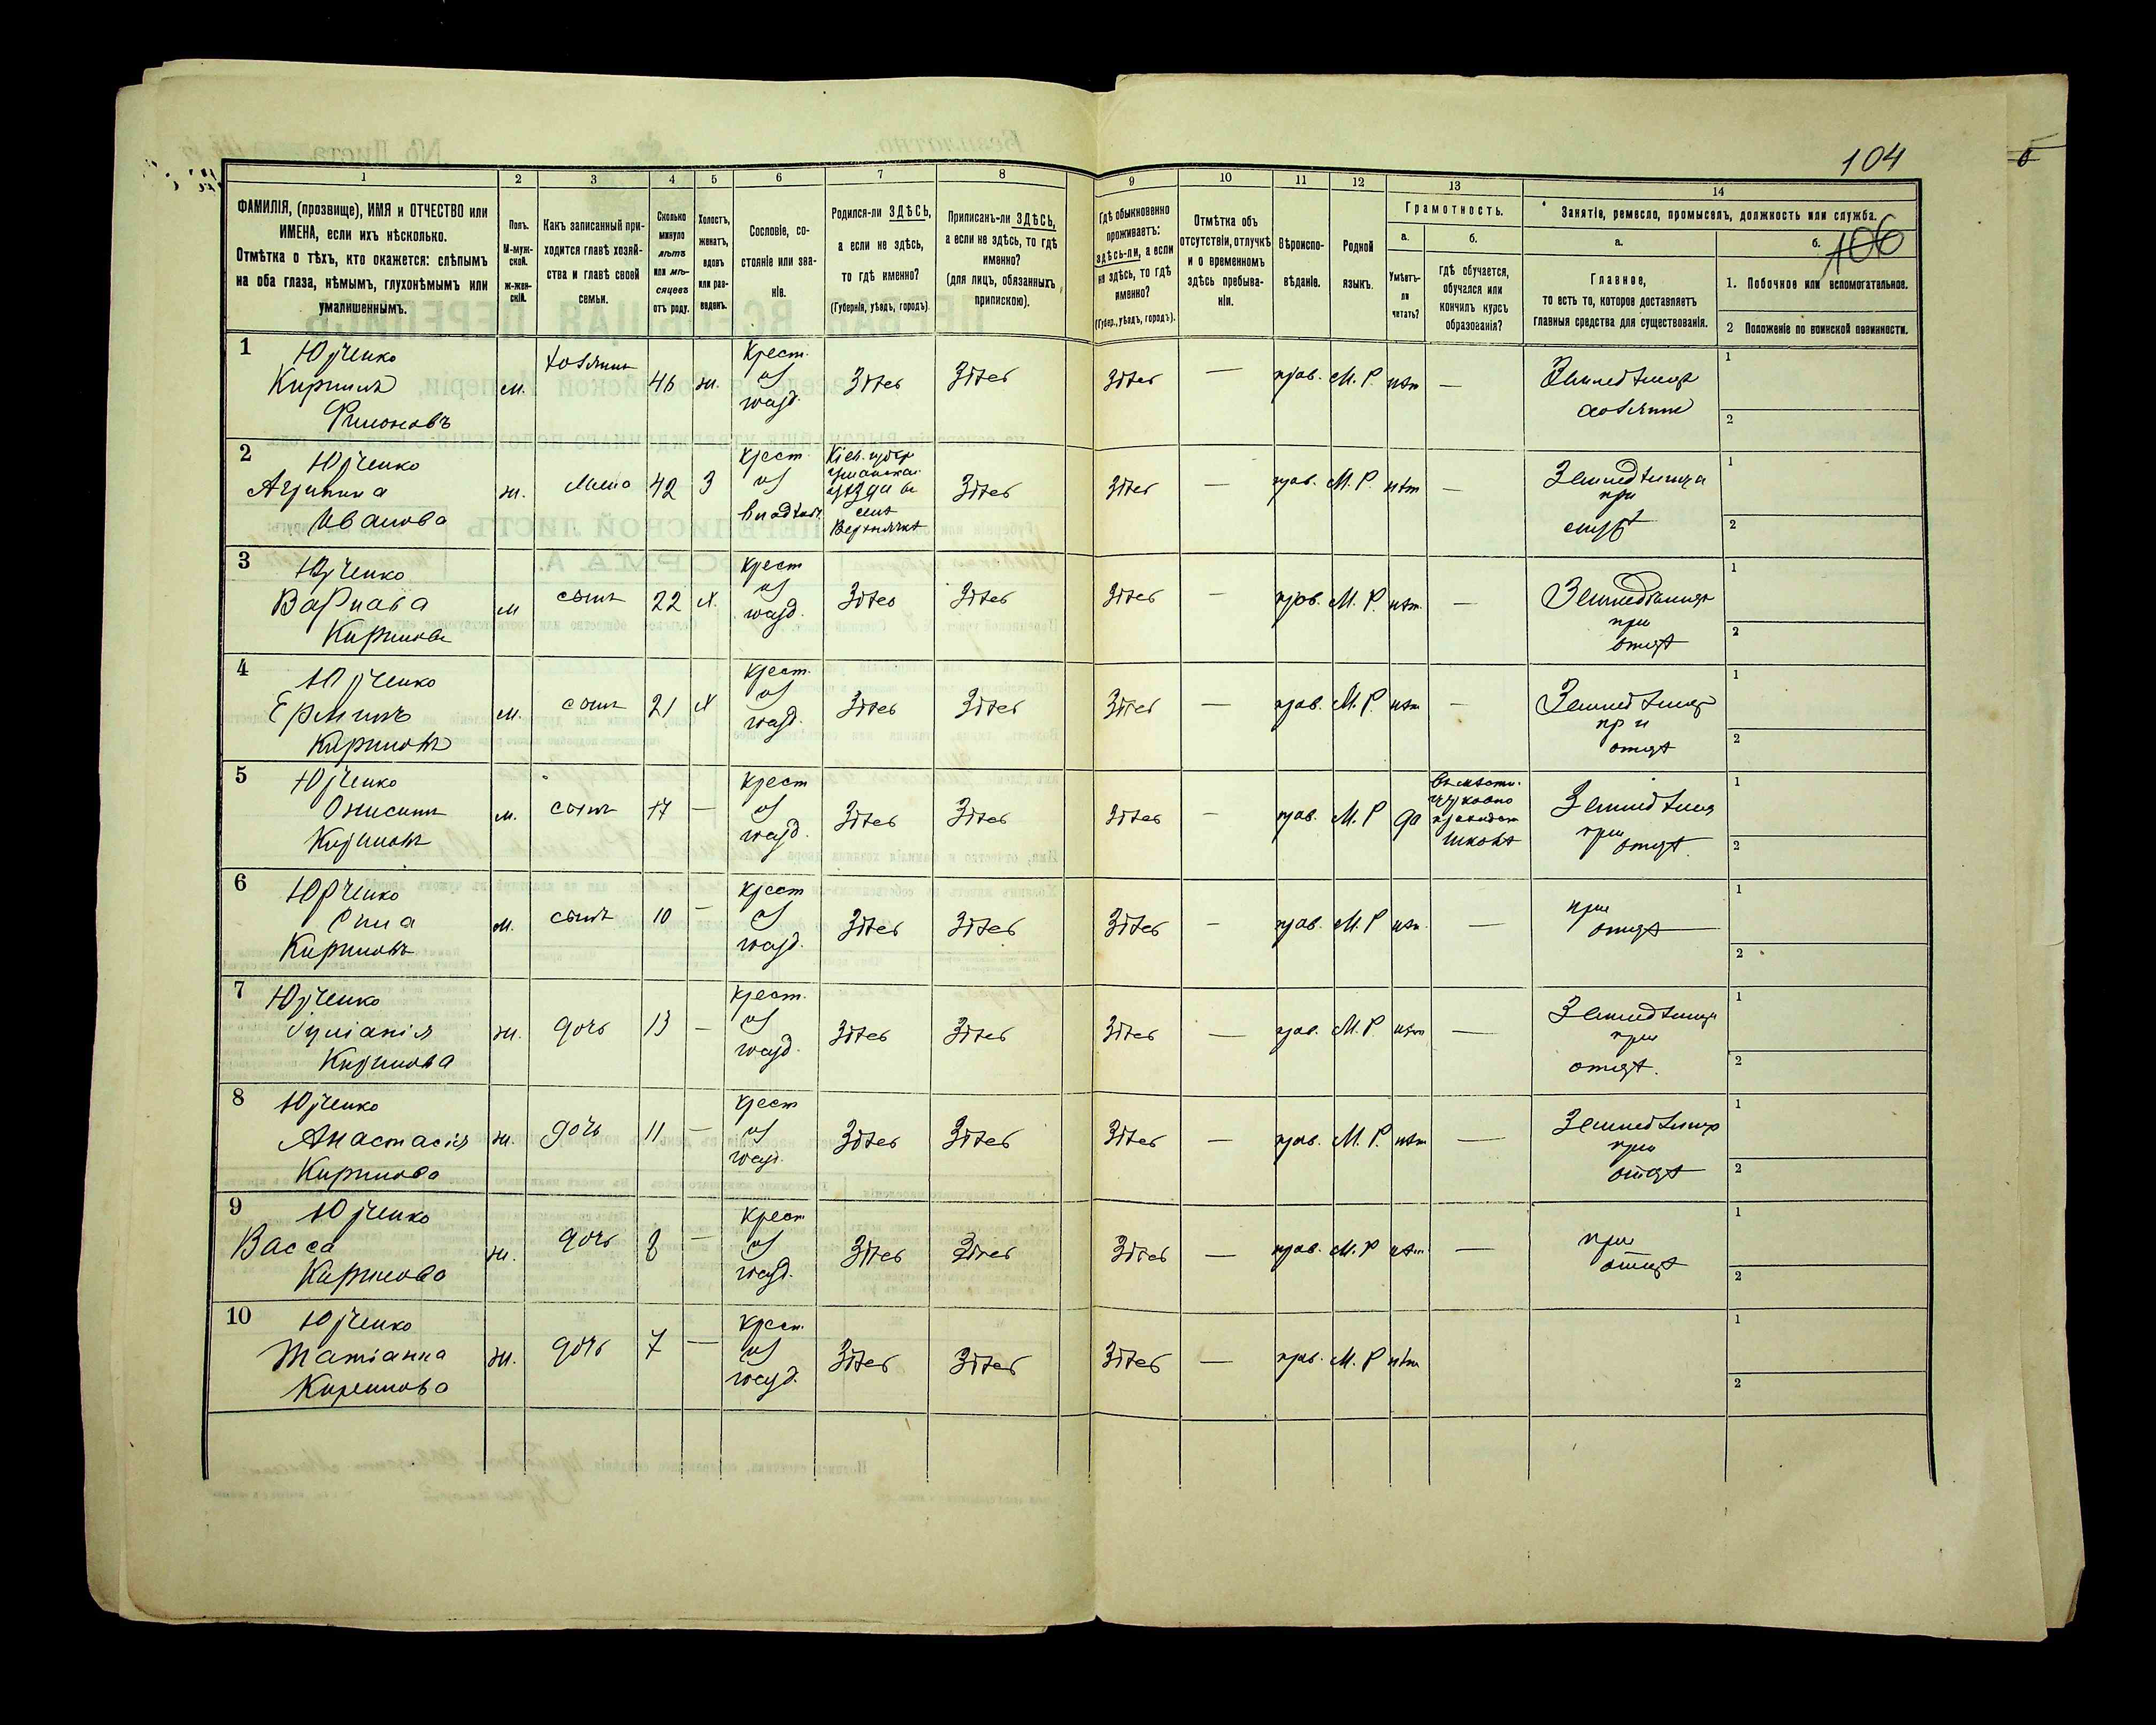 104
106
1 2 3 4 5 6 7 8 9 10 11 12 13 14
ФАМИЛІЯ, (прозвище), ИМЯ и ОТЧЕСТВО или ИМЕНА, если ихъ нѣсколько.
Отмѣтка о тѣхъ, кто окажется: слѣпымъ на оба глаза, нѣмымъ, глухонѣмымъ или умалишеннымъ.
Полъ.
М-мужской.
Ж-женскій.
Какъ записанный приходится главѣ хозяйства и главѣ своей семьи.
Сколько минуло лѣтъ или мѣсяцевъ отъ роду.
Холостъ, женатъ, вдовъ или разведенъ.
Сословіе, состояніе или званіе.
Родился-ли ЗДѢСЬ, а если не здѣсь, то гдѣ именно?
(Губернія, уѣздъ, городъ)
Приписанъ-ли ЗДѢСЬ, а если не здѣсь, то гдѣ именно?
(для лицъ, обязанныхъ припискою).
Гдѣ обыкновенно проживаетъ: здѣсь-ли, а если не здѣсь, то гдѣ именно?
(Губер., уѣздъ, городъ).
Отмѣтка объ отсутствіи, отлучкѣ и о временномъ здѣсь пребываніи.
Вѣроисповѣданіе.
Родной языкъ.
Грамотность.
а.
Умѣетъ-ли читать?
б.
гдѣ обучается, обучался или кончилъ курсъ образованія?
Занятіе, ремесло, промыселъ, должность или служба.
а.
Главное,
то есть то, которое доставляетъ главныя средства для существованія.
б.
1. Побочное или вспомогательное.
2 Положеніе по воинской повинности.
1 Юрченко Кирилъ Филоновъ м. хозяинъ 46 ж. Крест. из влад. Здѣсь Здѣсь Здѣсь — прав. М.Р. нѣтъ — Земледѣлецъ хозяинъ 1 2
2 Юрченко Агрипина Иванова ж. жена 42 З Крест из владѣльч. Кіев. губер Уманска. уѣзда въ селѣ Верхнячкѣ Здѣсь Здѣсь — прав. М.Р. нѣт — Земледѣлица при мужѣ 1 2
3 Юрченко Варнава Кириловъ м сынъ 22 х. Крест из влад. Здѣсь Здѣсь Здѣсь — прав. М.Р. нѣт. — Земледѣлецъ при отцѣ 1 2
4 Юрченко Ермилъ Кириловъ м. сынъ 21 х Крест. из влад. Здѣсь Здѣсь Здѣсь — прав. М.Р. нѣт — Земледѣлецъ при отцѣ 1 2
5 Юрченко Онисимъ Кириловъ м. сынъ 17 — Крест из влад. Здѣсь Здѣсь Здѣсь — прав. М.Р да въ мѣстн. церковно приходск школѣ Земледѣлецъ при отцѣ. 1 2
6 Юрченко Кириловъ м. сынъ 10 — Крест из влад. Здѣсь Здѣсь Здѣсь — прав. М.Р нѣт. — при отцѣ 1 2
7 Юрченко Іуліанія Кирилова ж. дочь 13 — Крест. из влад. Здѣсь Здѣсь Здѣсь — прав. М.Р. нѣт — Земледѣлица при отцѣ. 1 2
8 Юрченко Анастасія Кирилова ж. дочь 11 — Крест из влад. Здѣсь Здѣсь Здѣсь — прав. М.Р. нѣт — Земледѣлица при отцѣ 1 2
9 Юрченко Васса Кирилова ж. дочь 8 — Крест из влад. Здѣсь Здѣсь Здѣсь — прав. М.Р нѣт. — при отцѣ 1 2
10 Юрченко Татіанна Кирилова ж. дочь 7 — Крест. из влад. Здѣсь Здѣсь Здѣсь — прав. М.Р нѣт 1 2